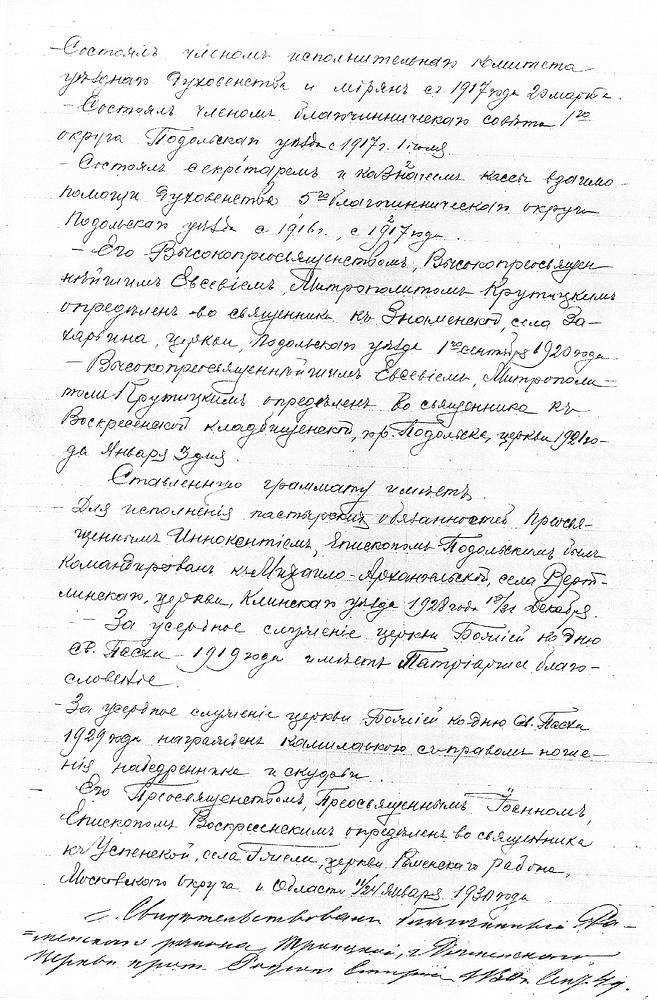 – Состоялъ членомъ исполнительнаго Комитета
уѣзднаго Духовенства и мірянъ съ 1917 года 20 марта.
– Состоялъ членомъ благочинническаго совѣта 1го
округа Подольскаго уѣзда с 1917 г. 1 іюля
– Состоялъ секрѣтаремъ и казначеемъ кассы взаимо-
помощи Духовенства 5го благочинническаго округа
Подольскаго уѣзда с 1916 г., с 1917 года.
– Его Высокопреосвященствомъ, Высокопреосвящен
нѣйшимъ Евсевіемъ, Митрополитомъ Крутицкимъ
опредѣленъ во священника къ Знаменской, села За-
харьина, церкви, Подольскаго уѣзда 1го сентября 1920 года.
– Высокопреосвященнѣйшимъ Евсевіемъ, Митрополи-
томъ Крутицкимъ опредѣленъ во священника къ
Воскресенской кладбищенской, гор. Подольска, церкви 1921 го-
да Января 3 дня.
Ставленную граммату имѣетъ.
Для исполненія пастырскихъ обязанностей Преосвя-
щеннымъ Иннокентіемъ, Епископомъ Подольскимъ былъ
командированъ къ Михаило-Архангельской, села Верт-
линскаго, церкви, Клинскаго уѣзда 1928 года 18/31 декабря.
– За усердное служеніе церкви Божіей ко Дню
Св. Пасхи – 1919 года имѣетъ Патріаршее благо-
словеніе.
– За усердное служеніе церкви Божіей ко дню Св. Пасхи
1929 года награжденъ камилавкою съ правомъ ноше-
нія набедренника и скуфьи.
– Его Преосвященствомъ, Преосвященнымъ Іоанномъ,
Епископомъ Воскресенскимъ опредѣленъ во священника
къ Успенской, села Гжели, церкви Раменскаго района,
Московскаго округа и области 11/24 января 1930 года
Свидѣтельствовалъ благочинный Ра-
менскаго района, Троицкой, г. Раменскаго
церкви прот. 1930 г. Апр. 4 д.